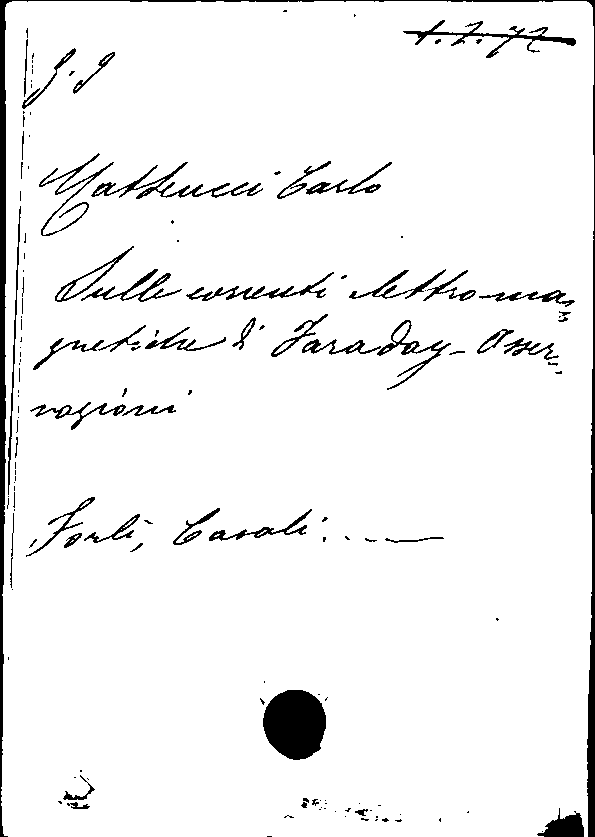 1.7.72
Matteucci Carlo
Sulle correnti elettro-ma=
gnetiche di Faraday - Osser=
vazioni
Forlì, Casali....